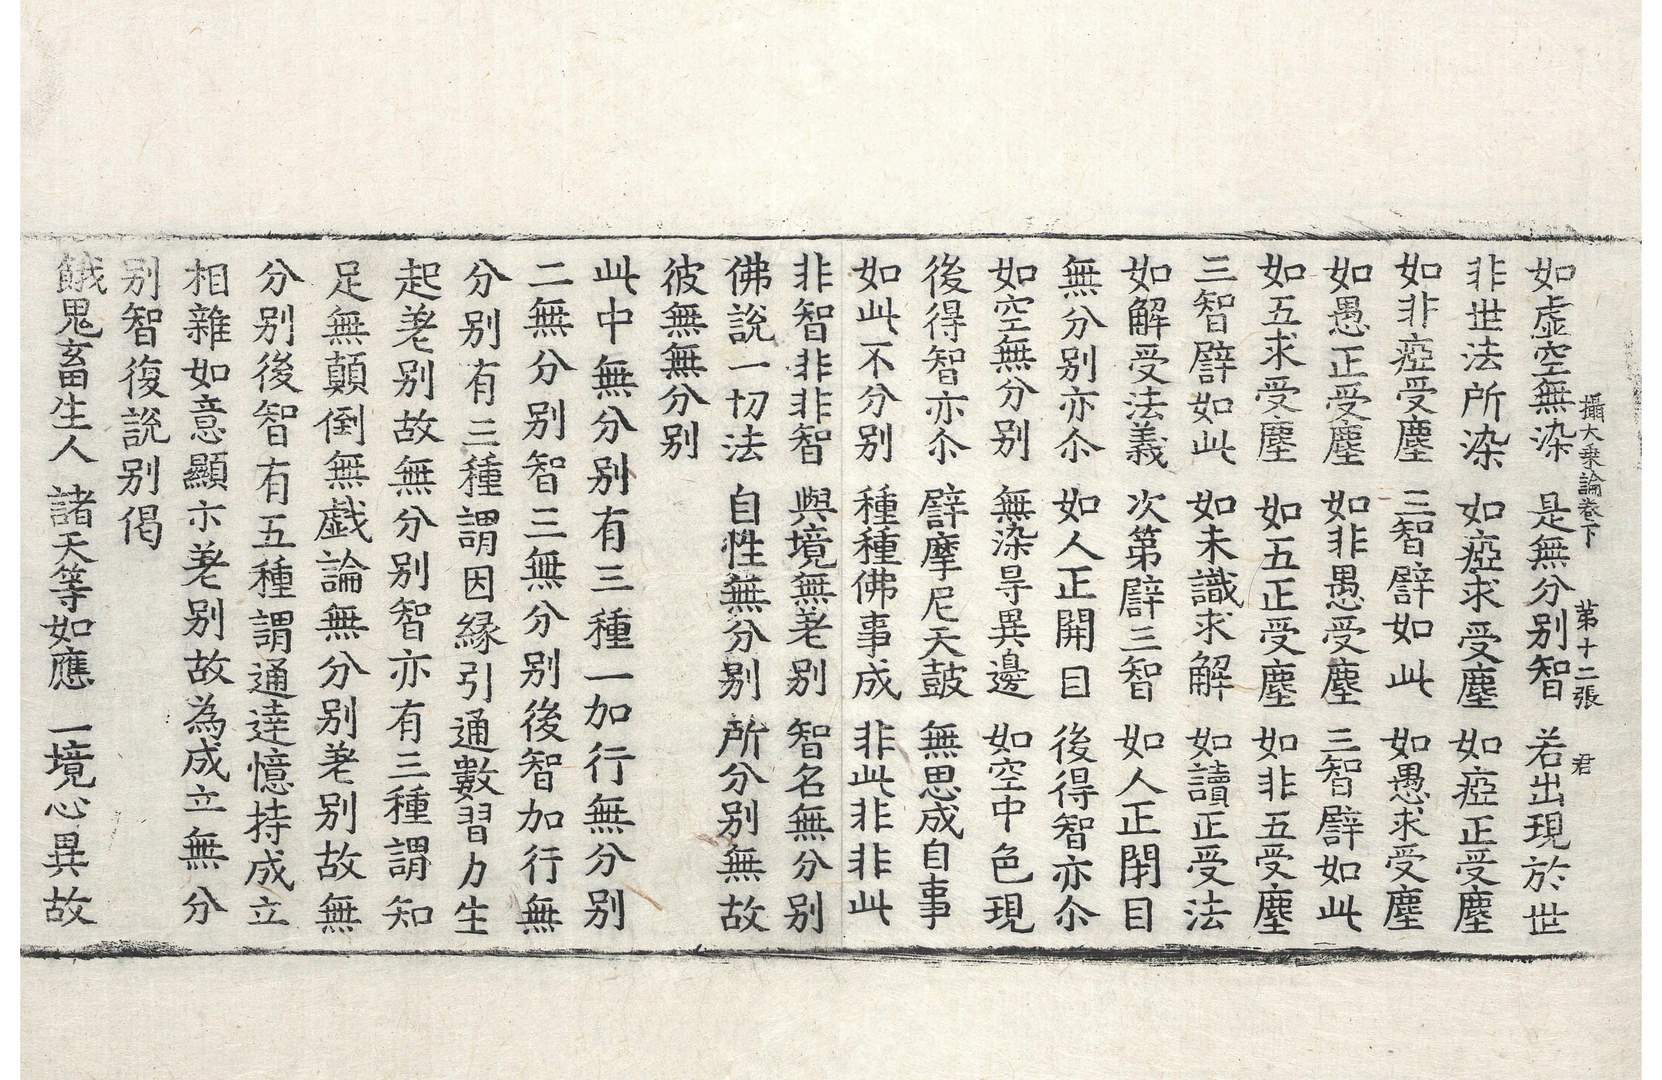 攝大乘論卷下 第十二張 君
如虛空無染 是無分別智 若出現於世
非世法所染 如瘂求受塵 如瘂正受塵
如非瘂受塵 三智譬如此 如愚求受塵
如愚正受塵 如非愚受塵 三智譬如此
如五求受塵 如五正受塵 如非五受塵
三智譬如此 如未識求解 如讀正受法
如解受法義 次第譬三智 如人正閉目
無分別亦尒 如人正開目 後得智亦尒
如空無分別 無染㝵異邊 如空中色現
後得智亦尒 譬摩尼天鼓 無思成自事
如此不分別 種種佛事成 非此非非此
非智非非智 與境無差別 智名無分別
佛說一切法 自性無分別 所分別無故
彼無無分別
此中無分別有三種一加行無分別
二無分別智三無分別後智加行無
分別有三種謂因緣引通數習力生
起差別故無分別智亦有三種謂知
足無顛倒無戲論無分別差別故無
分別後智有五種謂通達憶持成立
相雜如意顯示差別故為成立無分
別智復說別偈
餓鬼畜生人 諸天等如應 一境心異故